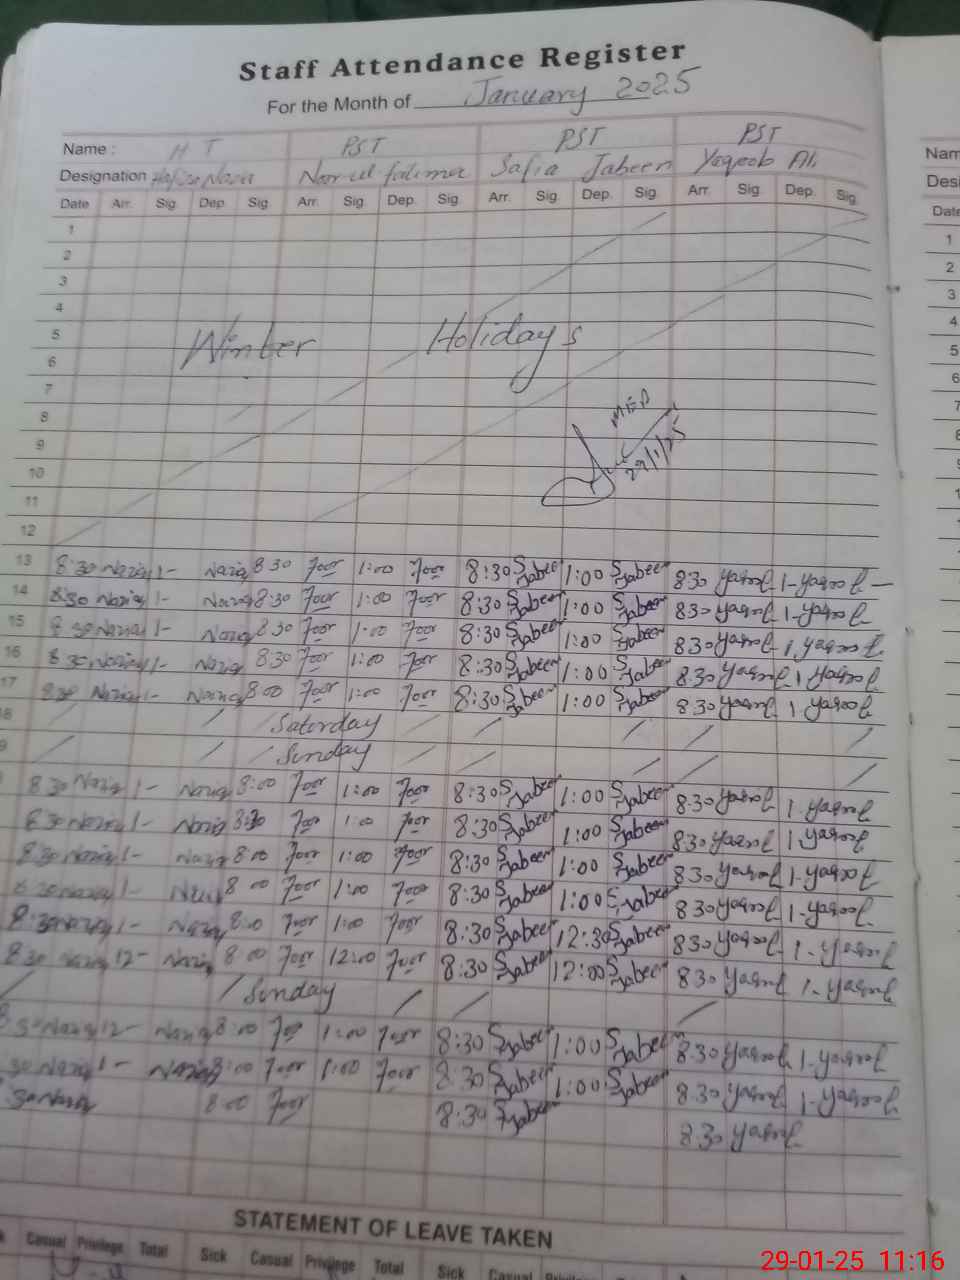 Staff Attendance Register
For the Month of January 2025
Name : H T PST PST PST
Designation Noor ul fatima Safia Jabeen Yaqoob Ali
Date Arr. Sig. Dep. Sig. Arr. Sig. Dep. Sig. Arr. Sig. Dep. Sig. Arr. Sig. Dep. Sig.
1
2
3
4
5
Winter Holidays
6
7
8
MEA
9
29/1/25
10
11
12
13 8:30 Nazia 1- Nazia 8 30 Noor 1:00 Noor 8:30 S Jabeen 1:00 S Jabeen 830 Yaqoob 1- Yaqoob
14 8:30 Nazia 1- Nazia 8:30 Noor 1:00 Noor 8:30 S Jabeen 1:00 S Jabeen 830 Yaqoob 1- Yaqoob
15 8 30 Nazia 1- Nazia 8 30 Noor 1:00 Noor 8:30 S Jabeen 1:00 S Jabeen 830 Yaqoob 1, Yaqoob
16 8 30 Nazia 1- Nazia 8:30 Noor 1:00 Noor 8:30 S Jabeen 1:00 S Jabeen 8.30 Yaqoob 1 Yaqoob
17 8:30 Nazia 1- Nazia 8:00 Noor 1:00 Noor 8:30 S Jabeen 1:00 S Jabeen 830 Yaqoob 1. Yaqoob
Saturday
Sunday
8 30 Nazia 1- Nazia 8:00 Noor 1:00 Noor 8:30 S Jabeen 1:00 S Jabeen 8.30 Yaqoob 1. Yaqoob
8:30 Nazia 1- Nazia 8:30 Noor 1:00 Noor 8:30 S Jabeen 1:00 S Jabeen 8.30 Yaqoob 1. Yaqoob
8:30 Nazia 1- Nazia 8:00 Noor 1:00 Noor 8:30 S Jabeen 1:00 S Jabeen 8.30 Yaqoob 1- Yaqoob
8 30 Nazia 1- Nazia 8 00 Noor 1:00 Noor 8:30 S Jabeen 1:00 S Jabeen 830 Yaqoob 1- Yaqoob
8:30 Nazia 1- Nazia 8:00 Noor 1:00 Noor 8:30 S Jabeen 12:30 S Jabeen 830 Yaqoob 1- Yaqoob
8 30 Nazia 12- Nazia 8 00 Noor 12:00 Noor 8:30 S Jabeen 12:00 S Jabeen 8 30 Yaqoob 1- Yaqoob
Sunday
30 Nazia 12- Nazia 8:00 Noor 1:00 Noor 8:30 S Jabeen 1:00 S Jabeen 8.30 Yaqoob 1- Yaqoob
30 Nazia 1- Nazia 8:00 Noor 1:00 Noor 8:30 S Jabeen 1:00 S Jabeen 8.30 Yaqoob 1- Yaqoob
30 Nazia 8:00 Noor 8:30 S Jabeen 8.30 Yaqoob
STATEMENT OF LEAVE TAKEN
Casual Privilege Total Sick Casual Privilege Total Sick Casual
29-01-25 11:16